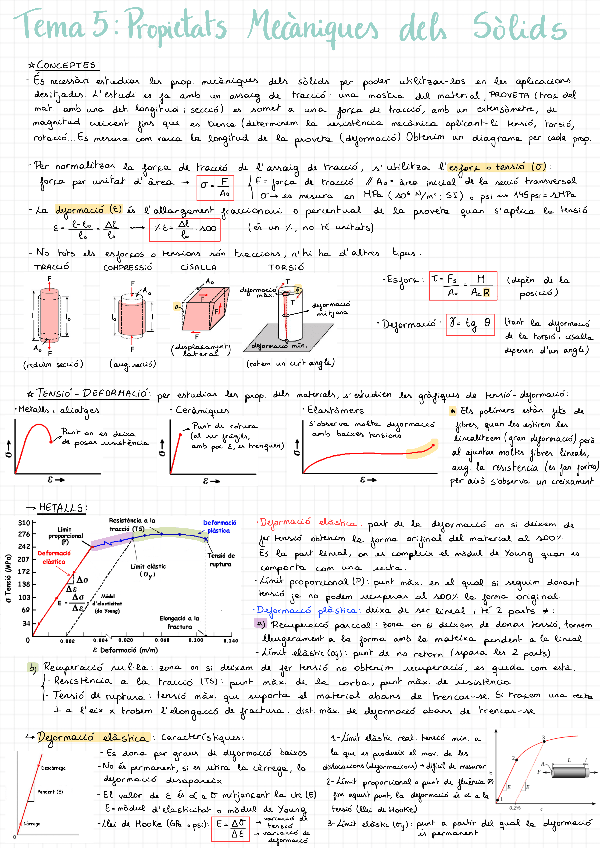 Tema 5: Propietats Mecàniques dels Sòlids
★ CONCEPTES
- És necessari estudiar les prop. mecàniques dels sòlids per poder utilitzar-los en les aplicacions
desitjades. L'estudi es fa amb un assaig de tracció: una mostra del material, PROVETA (tros del
mat. amb una det. longitud i secció) es somet a una força de tracció, amb un extensòmetre, de
magnitud creixent fins que es trenca (determinem la resistència mecànica aplicant-li tensió, torsió,
rotació... Es mesura com varia la longitud de la proveta (deformació) Obtenim un diagrama per cada prop.
- Per normalitzar la força de tracció de l'assaig de tracció, s'utilitza l'esforç o tensió (σ):
força per unitat d'àrea → σ = F / A₀ { F = força de tracció // A₀ = àrea inicial de la secció transversal
σ → es mesura en MPa (10⁶ N/m², SI) o psi → 145 psi = 1 MPa
- La deformació (ε) és l'allargament fraccionari o percentual de la proveta quan s'aplica la tensió
ε = l - l₀ / l₀ = Δl / l₀ → % ε = Δl / l₀ · 100 (és un %, no té unitats)
- No tots els esforços o tensions són traccions, n'hi ha d'altres tipus.
TRACCIÓ COMPRESSIÓ CISALLA TORSIÓ
F F A₀ deformació màx. T
l l₀ l₀ l F deformació mitjana
A₀ F A₀ F deformació mín.
(reduïm secció) (aug. secció) (desplaçament lateral) (rotem un cert angle)
- Esforç: τ = Fs / A₀ = M / A₀R (depèn de la
posició)
- Deformació: γ = tg θ (tant la deformació
de la torsió i cisalla
depenen d'un angle)
★ TENSIÓ - DEFORMACIÓ: per estudiar les prop. dels materials, s'estudien les gràfiques de tensió-deformació:
- Metalls i aliatges - Ceràmiques - Elastòmers
Punt on es deixa
de posar resistència
Punt de rotura
(al ser fràgils,
amb poc ε, es trenquen)
s'observa molta deformació
amb baixes tensions
σ → ε → σ → ε → σ → ε →
Els polímers estan fets de
fibres, quan les estirem les
linealitzem (gran deformació) però
al ajuntar moltes fibres lineals,
aug. la resistència (es fan fortes)
per això s'observa un creixement
→ METALLS:
σ Tensió (MPa)
310
276
242
207
172
138
103
69
34
Límit
proporcional
(P)
Resistència a la
tracció (TS)
Deformació
plàstica
Deformació
elàstica
Límit elàstic
(σy)
Tensió de
ruptura
Δσ
Δε
E = Δσ / Δε
Mòdul
d'elasticitat
(o Young)
Elongació a la
fractura
0.002 0.004 0.020 0.080 0.100 0.140
ε Deformació (m/m)
- Deformació elàstica: part de la deformació on si deixem de
fer tensió obtenim la forma original del material al 100%.
És la part lineal, on es compleix el mòdul de Young quan es
comporta com una recta.
- Límit proporcional (P): punt màx. en el qual si seguim donant
tensió ja no podem recuperar al 100% la forma original
- Deformació plàstica: deixa de ser lineal, té 2 parts:
a) Recuperació parcial: zona on si deixem de donar tensió, tornem
lleugerament a la forma amb la mateixa pendent a la lineal
- Límit elàstic (σy): punt de no retorn (separa les 2 parts)
b) Recuperació nul·la: zona on si deixem de fer tensió no obtenim recuperació, es queda com està.
- Resistència a la tracció (TS): punt màx. de la corba, punt màx. de resistència
- Tensió de ruptura: tensió màx. que suporta el material abans de trencar-se. Si tracem una recta
⊥ a l'eix x trobem l'elongació de fractura: dist. màx. de deformació abans de trencar-se
↳ Deformació elàstica: Característiques:
Descàrrega
Pendent (E)
Càrrega
- Es dona per graus de deformació baixos
- No és permanent, si es retira la càrrega, la
deformació desapareix
- El valor de ε és α a σ mitjançant la cte (E)
E = mòdul d'elasticitat o mòdul de Young
- Llei de Hooke (GPa o psi): E = Δσ / Δε → variació de tensió → variació de deformació
1- Límit elàstic real: tensió mín. a
la que es produeix el mov. de les
dislocacions (deformacions) → difícil de mesurar
2- Límit proporcional o punt de fluència
fins aquest punt, la deformació és α a la
tensió (llei de Hooke)
3- Límit elàstic (σy): punt a partir del qual la deformació
és permanent